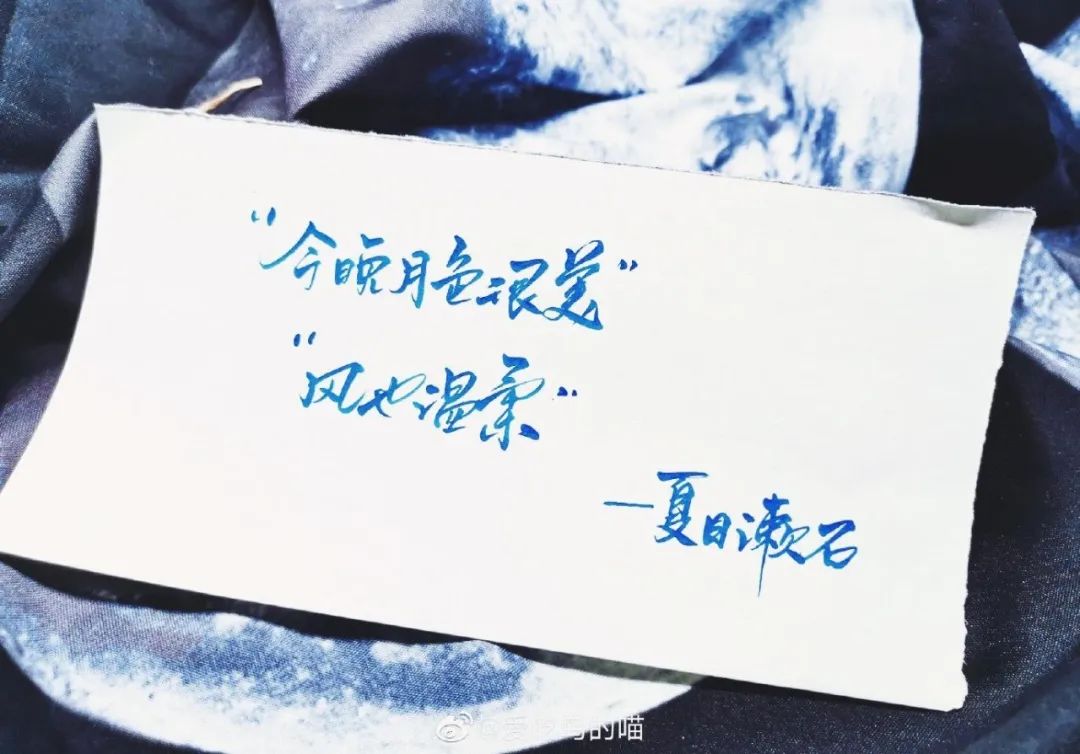 “今晚月色很美”
“风也温柔”
—夏目漱石
的喵